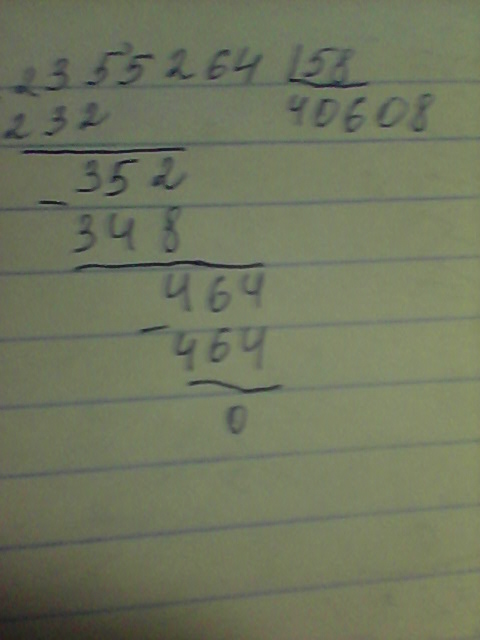 2355264 |58
232 40608
352
- 348
464
- 464
0